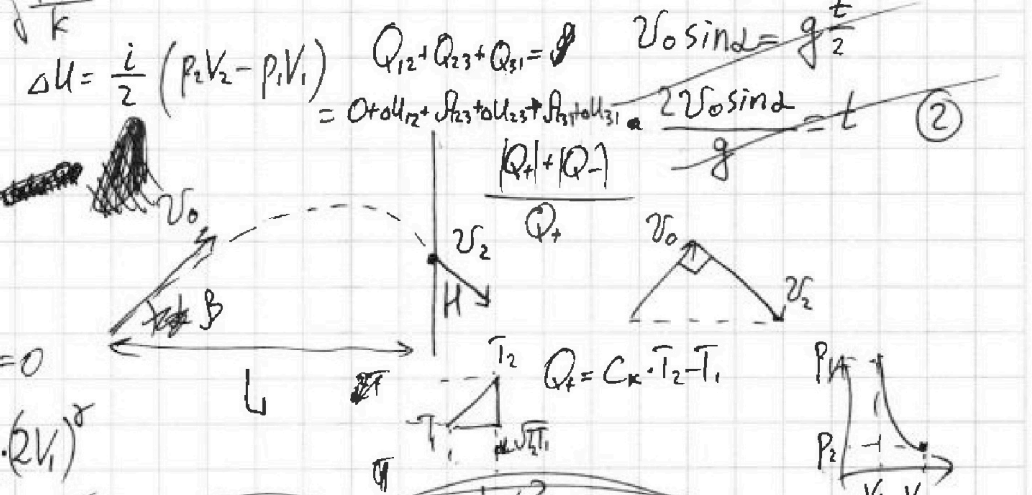 k
ΔU = i/2 (p₂V₂ − p₁V₁)
Q₁₂+Q₂₃+Q₃₁=
= 0+ΔU₁₂+A₂₃+ΔU₂₃+A₃₁+ΔU₃₁
v₀ sinα = g t/2
2v₀ sinα / g = t
②
|Q₊|+|Q₋| / Q₊
v₀
β
v₂
H
L
v₀
v₂
=0
·(2V₁)^γ
T₂
T₁
√T₂T₁
Q₊ = Cₖ·T₂−T₁
P₁
P₂
V₁ V